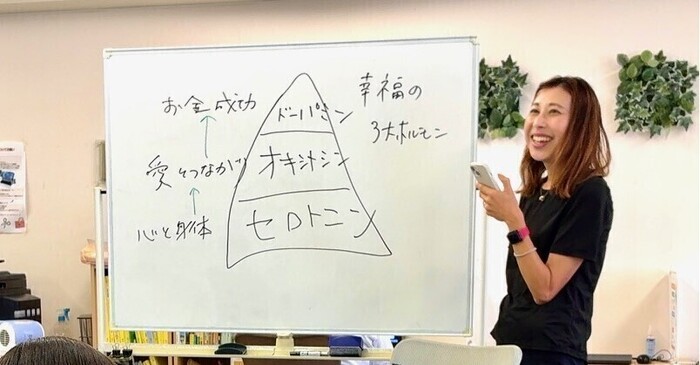 幸福の
3大ホルモン
お金 成功
ドーパミン
愛 つながり
オキシトシン
心と身体
セロトニン